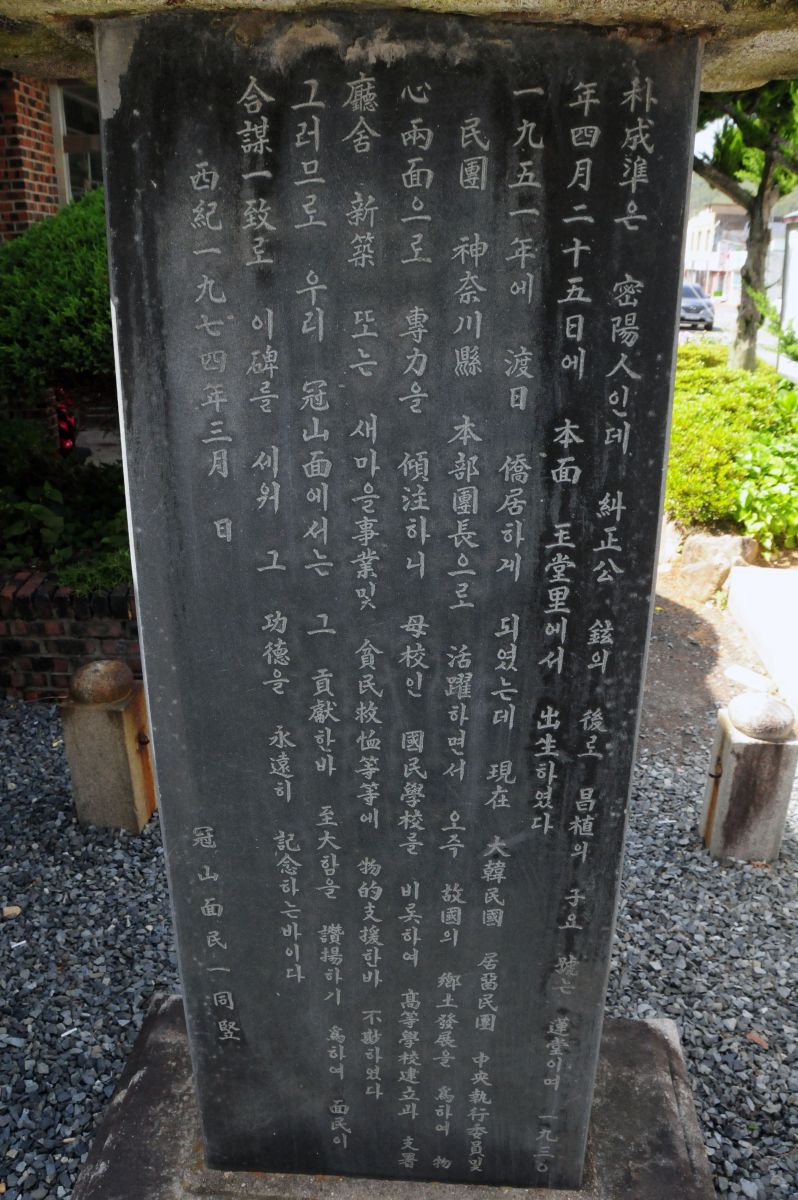 朴成準은 密陽人인데 糾正公 鉉의 後로 昌植의 子요 號는 蓮堂이며 一九三〇
年四月二十五日에 本面 玉堂里에서 出生하였다
一九五一年에 渡日 僑居하게 되였는데 現在 大韓民國 居留民團 中央執行委員및
民團 神奈川縣 本部團長으로 活躍하면서 오즉 故國의 鄕土發展을 爲하여 物
心兩面으로 專力을 傾注하니 母校인 國民學校를 비롯하여 高等學校建立과 支署
廳舍 新築 또는 새마을事業및 貧民救恤等等에 物的支援한바 不尠하였다
그러므로 우리 冠山面에서는 그 貢獻한바 至大함을 讚揚하기 爲하여 面民이
合謀一致로 이碑를 세워 그 功德을 永遠히 記念하는바이다
西紀一九七四年三月 日 冠山面民一同竪